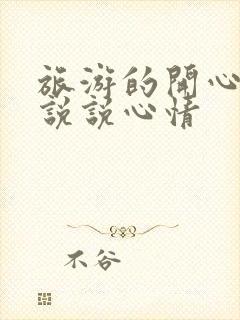 旅游的開心
說說心情
不谷